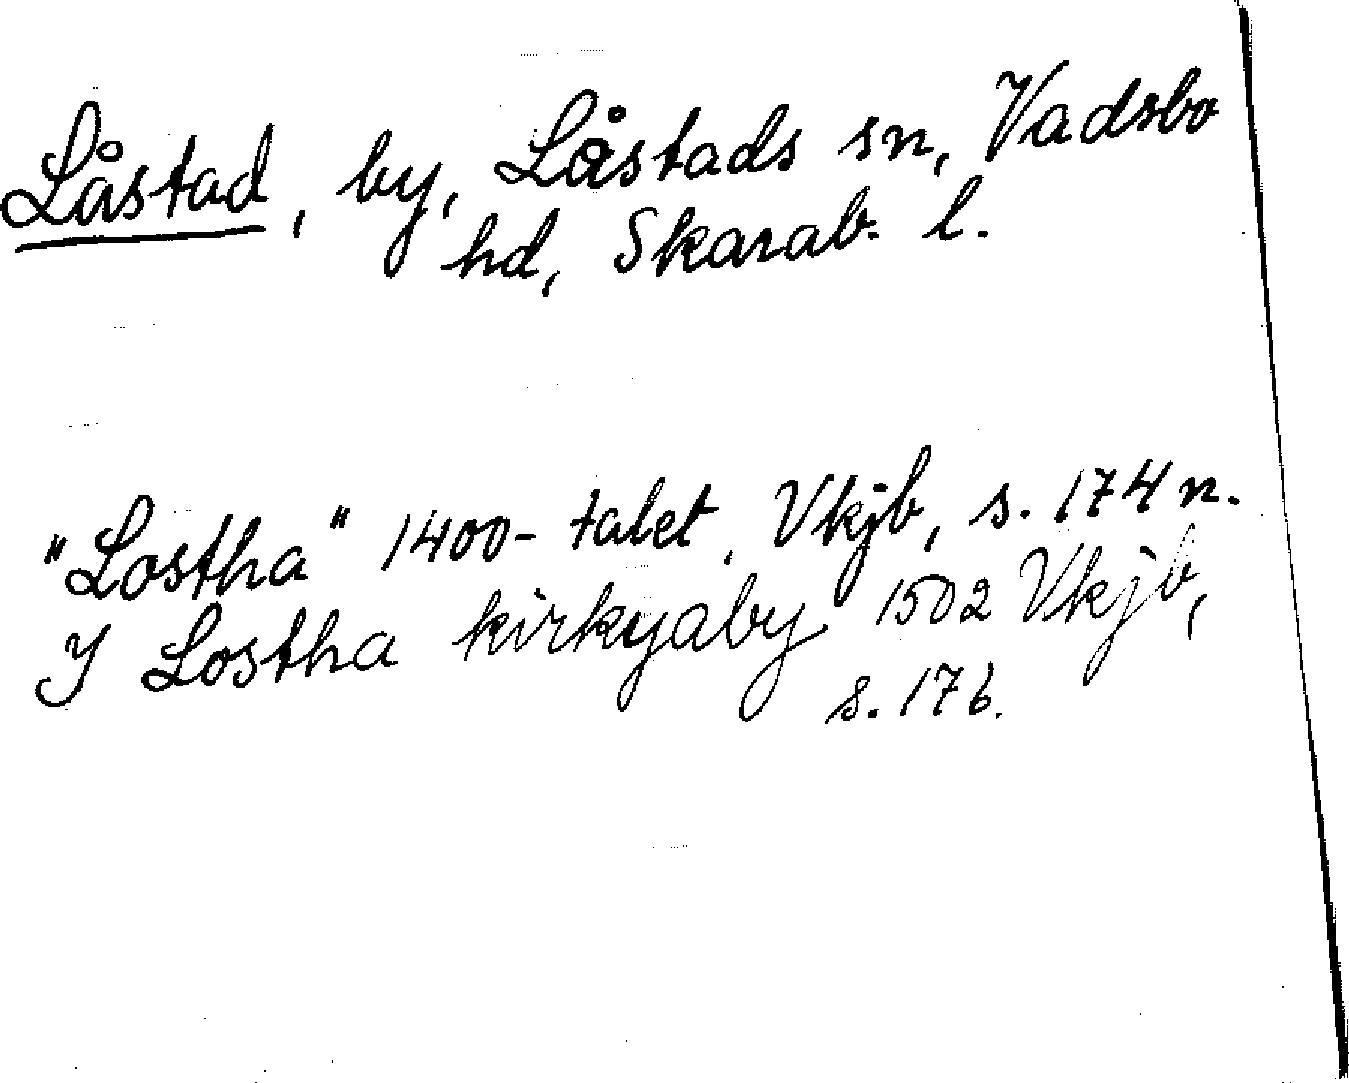 Låstad, by, Låstads sn, Vadsbo
hd, Skarab. l.
"Lostha" 1400-talet, Vkjb, s. 174 n.
Y Lostha kirkyaby 1502 Vkjb,
s. 176.